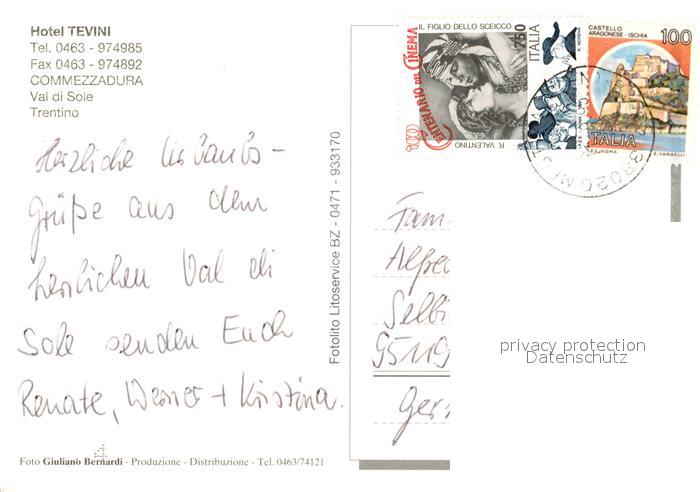 Hotel TEVINI
Tel. 0463 - 974985
Fax 0463 - 974892
COMMEZZADURA
Val di Sole
Trentino
Herzliche Urlaubs-
grüße aus dem
herrlichen Val di
Sole senden Euch
Renate, Werner + Kristina.
Foto Giuliano Bernardi - Produzione - Distribuzione - Tel. 0463/74121
Fotolito Litoservice BZ - 0471 - 933170
IL FIGLIO DELLO SCEICCO
CENTENARIO DEL CINEMA
750
ITALIA
R. VALENTINO
CASTELLO
ARAGONESE - ISCHIA
100
ITALIA
38020
Fam.
Alfre
Selb
95119
Ger
privacy protection
Datenschutz